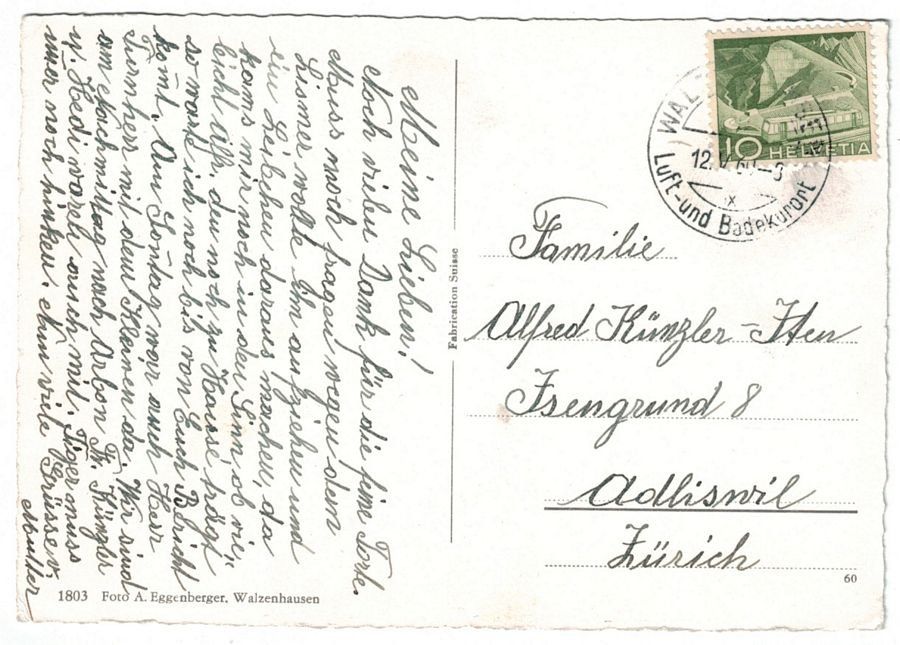 Meine Lieben!
Noch vielen Dank für die feine Torte.
Muss noch fragen wegen dem
Lismer wollte Ihn aufziehen und
ein Leibchen daraus machen, da
kam mir noch in den Sinn, ob vie„
licht Alfr. den noch zu Hause trägt
so warte ich noch bis von Euch Bericht
komt. Am Sontag war auch Herr
mit dem Kleinen da. Wir sind
am Nachmittag nach Arbon Fr. Künzler
u. Hedi waren auch mit, Tiger muss
imer noch hinken. Nun viele Grüsse v.
Mutter
1803 Foto A. Eggenberger, Walzenhausen
Fabrication Suisse
10 HELVETIA
12.V.60
Luft-und Badekurort
Familie
Alfred Künzler-Iten
Isengrund 8
Adliswil
Zürich
60